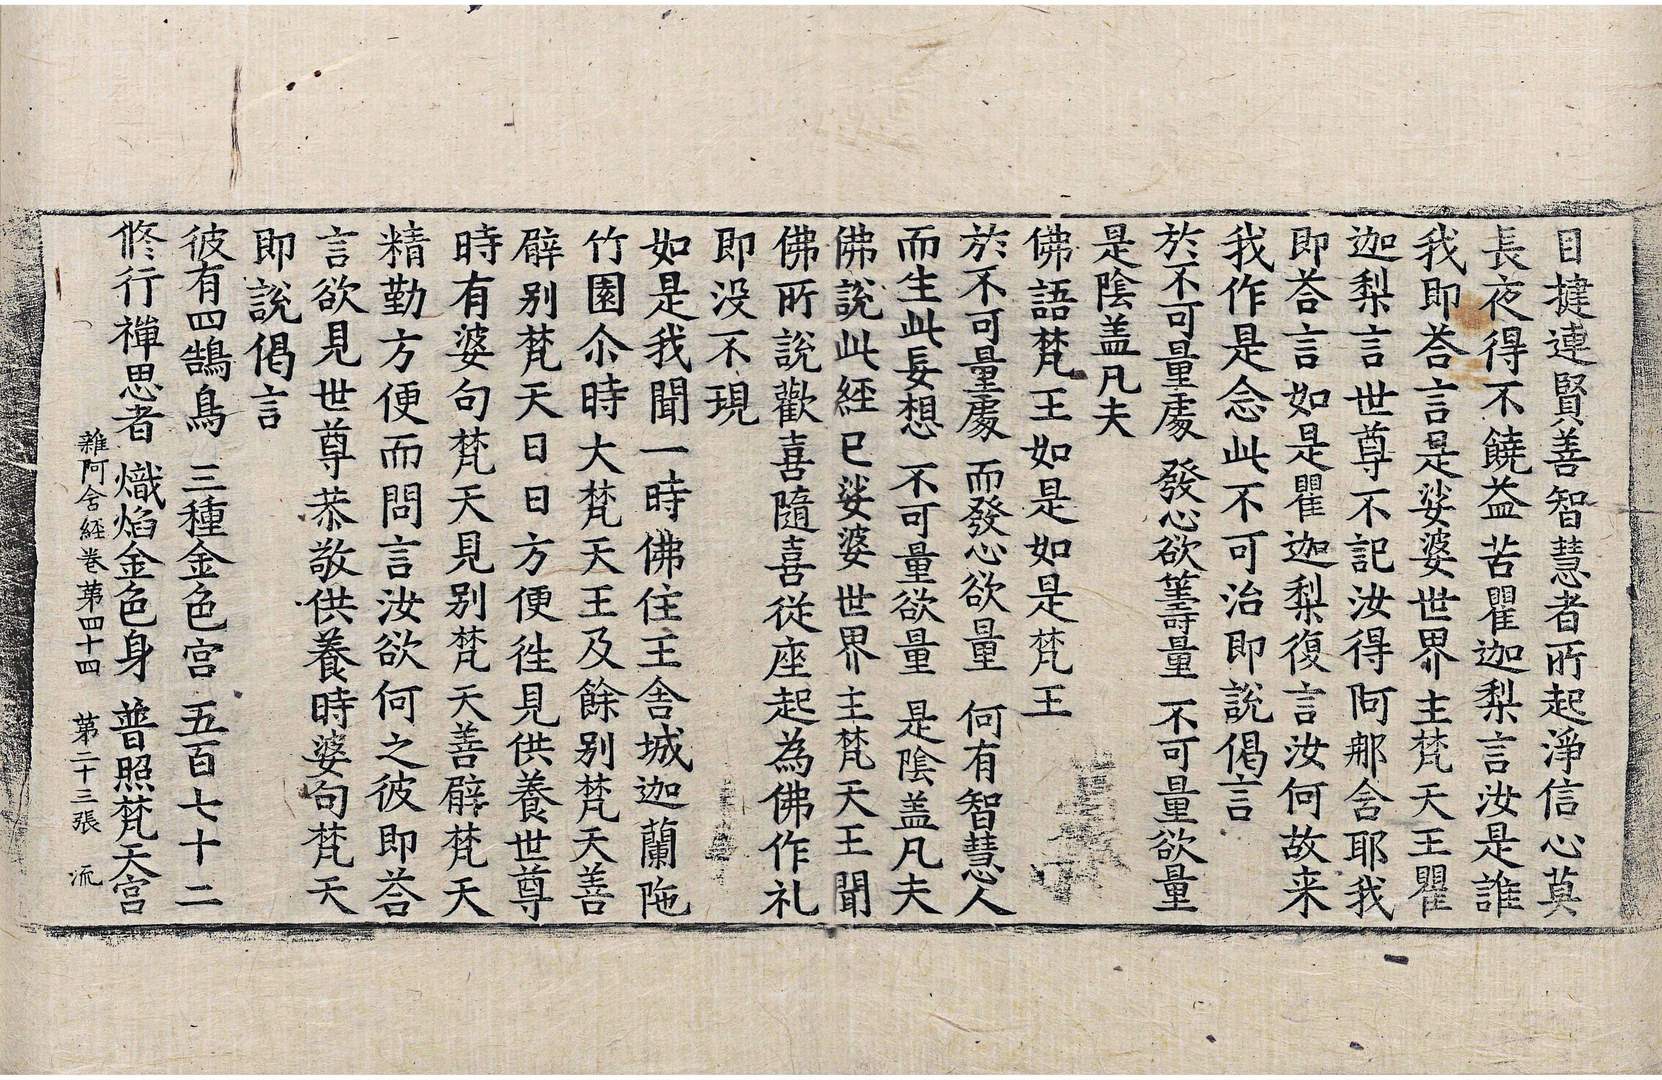 目揵連賢善智慧者所起淨信心莫
長夜得不饒益苦瞿迦梨言汝是誰
我即荅言是娑婆世界主梵天王瞿
迦梨言世尊不記汝得阿那含耶我
即荅言如是瞿迦梨復言汝何故来
我作是念此不可治即說偈言
於不可量處 發心欲筭量 不可量欲量
是陰盖凡夫
佛語梵王如是如是梵王
於不可量處 而發心欲量 何有智慧人
而生此妄想 不可量欲量 是陰盖凡夫
佛說此經已娑婆世界主梵天王聞
佛所說歡喜隨喜從座起為佛作礼
即没不現
如是我聞一時佛住王舍城迦蘭陁
竹園尒時大梵天王及餘别梵天善
臂别梵天日日方便徃見供養世尊
時有婆句梵天見别梵天善臂梵天
精勤方便而問言汝欲何之彼即荅
言欲見世尊恭敬供養時婆句梵天
即說偈言
彼有四鵠鳥 三種金色宫 五百七十二
修行禪思者 熾焰金色身 普照梵天宫
雜阿含經卷第四十四 第二十三張 流